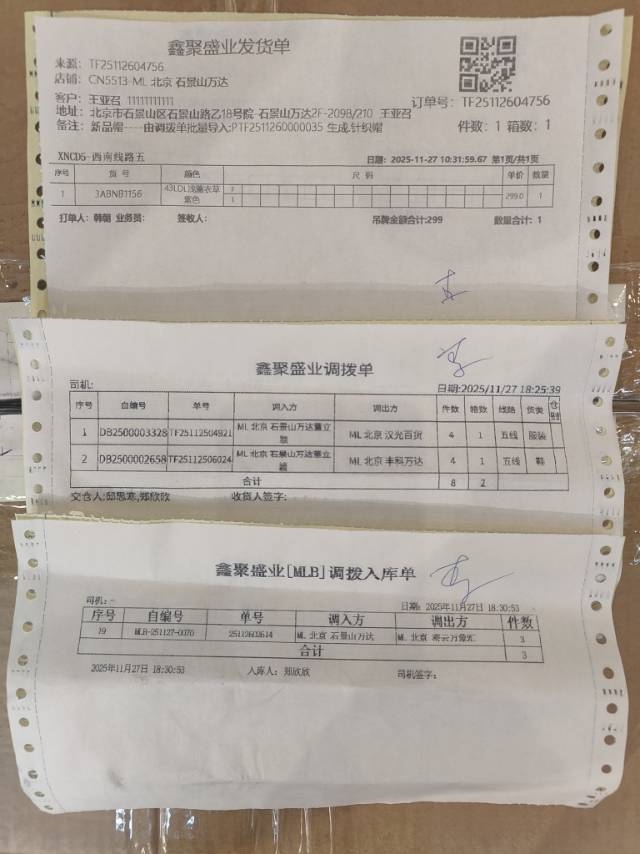 鑫聚盛业发货单
来源：TF25112604756
店铺：CN5513-ML 北京 石景山万达
客户：王亚召 11111111111
订单号：TF25112604756
地址：北京市石景山区石景山路乙18号院-石景山万达2F-209B/210 王亚召
备注：新品帽----由调拨单批量导入:PTF2511260000035 生成,针织帽
件数：1 箱数：1
XNCD5-西南线路五
日期：2025-11-27 10:31:59.67 第1页/共1页
序号 货 号 颜色 尺 码 单价 数量
1 3ABNB1156 43LDL浅薰衣草紫色 F 1 299.0 1
打单人：韩朝 业务员： 签收人： 吊牌金额合计:299 数量合计：1
鑫聚盛业调拨单
司机: 日期:2025/11/27 18:25:39
序号 自编号 单号 调入方 调出方 件数 箱数 线路 货类 仓别
1 DB2500003328 TF25112504921 ML 北京 石景山万达董立颖 ML 北京 汉光百货 4 1 五线 服装
2 DB2500002658 TF25112506024 ML 北京 石景山万达董立颖 ML 北京 丰科万达 4 1 五线 鞋
合计 8 2
交仓人:邱思寒,郑欣欣 收货人签字:
鑫聚盛业[MLB]调拨入库单
司机：- 日期：2025年11月27日 18:30:53
序号 自编号 单号 调入方 调出方 件数
19 MLB-251127-0070 25112602614 ML 北京 石景山万达 ML 北京 密云万象汇 3
合计 3
2025年11月27日 18:30:53 入库人：郑欣欣 司机签字：